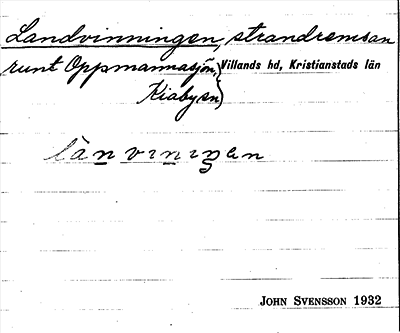 Landvinningen, strandremsan
runt Oppmannasjön, Villands hd, Kristianstads län
Kiaby sn
lànviniŋən
JOHN SVENSSON 1932